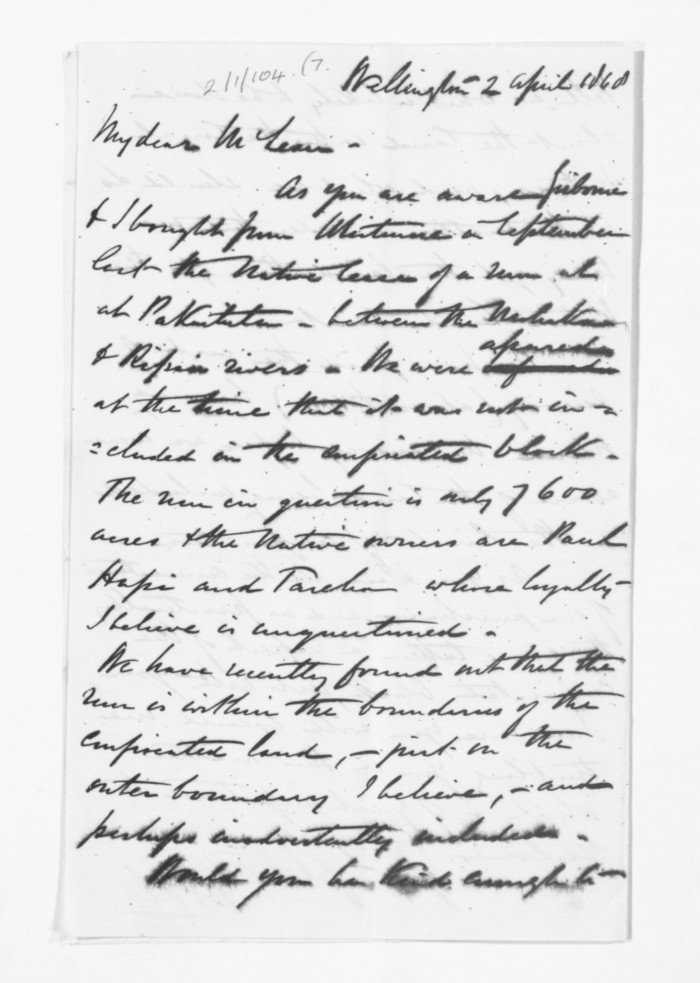 2/1/104. (7.
Wellington 2 April 1868
My dear McLean -
As you are aware Gisborne
& I bought from Miturere in September
last the Native lease of a run at
at Pakututu - between the Mohaka
& Ripia rivers - We were assured
at the time that it was not in-
=cluded in the confiscated block -
The run in question is only 7600
acres & the Native owners are Paul
Hapi and Tareha whose loyalty
I believe is unquestioned -
We have recently found out that the
run is within the boundaries of the
confiscated land, - just on the
outer boundary I believe, - and
perhaps inadvertently included -
Would you be kind enough to